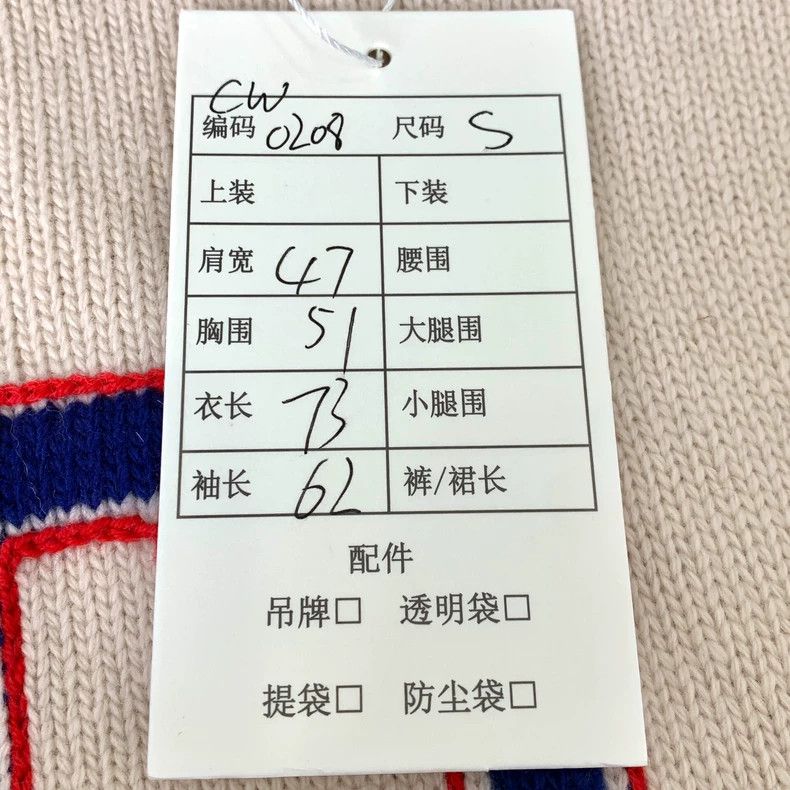 CW
编码 0208 尺码 S
上装 下装
肩宽 47 腰围
胸围 51 大腿围
衣长 73 小腿围
袖长 62 裤/裙长
配件
吊牌□ 透明袋□
提袋□ 防尘袋□